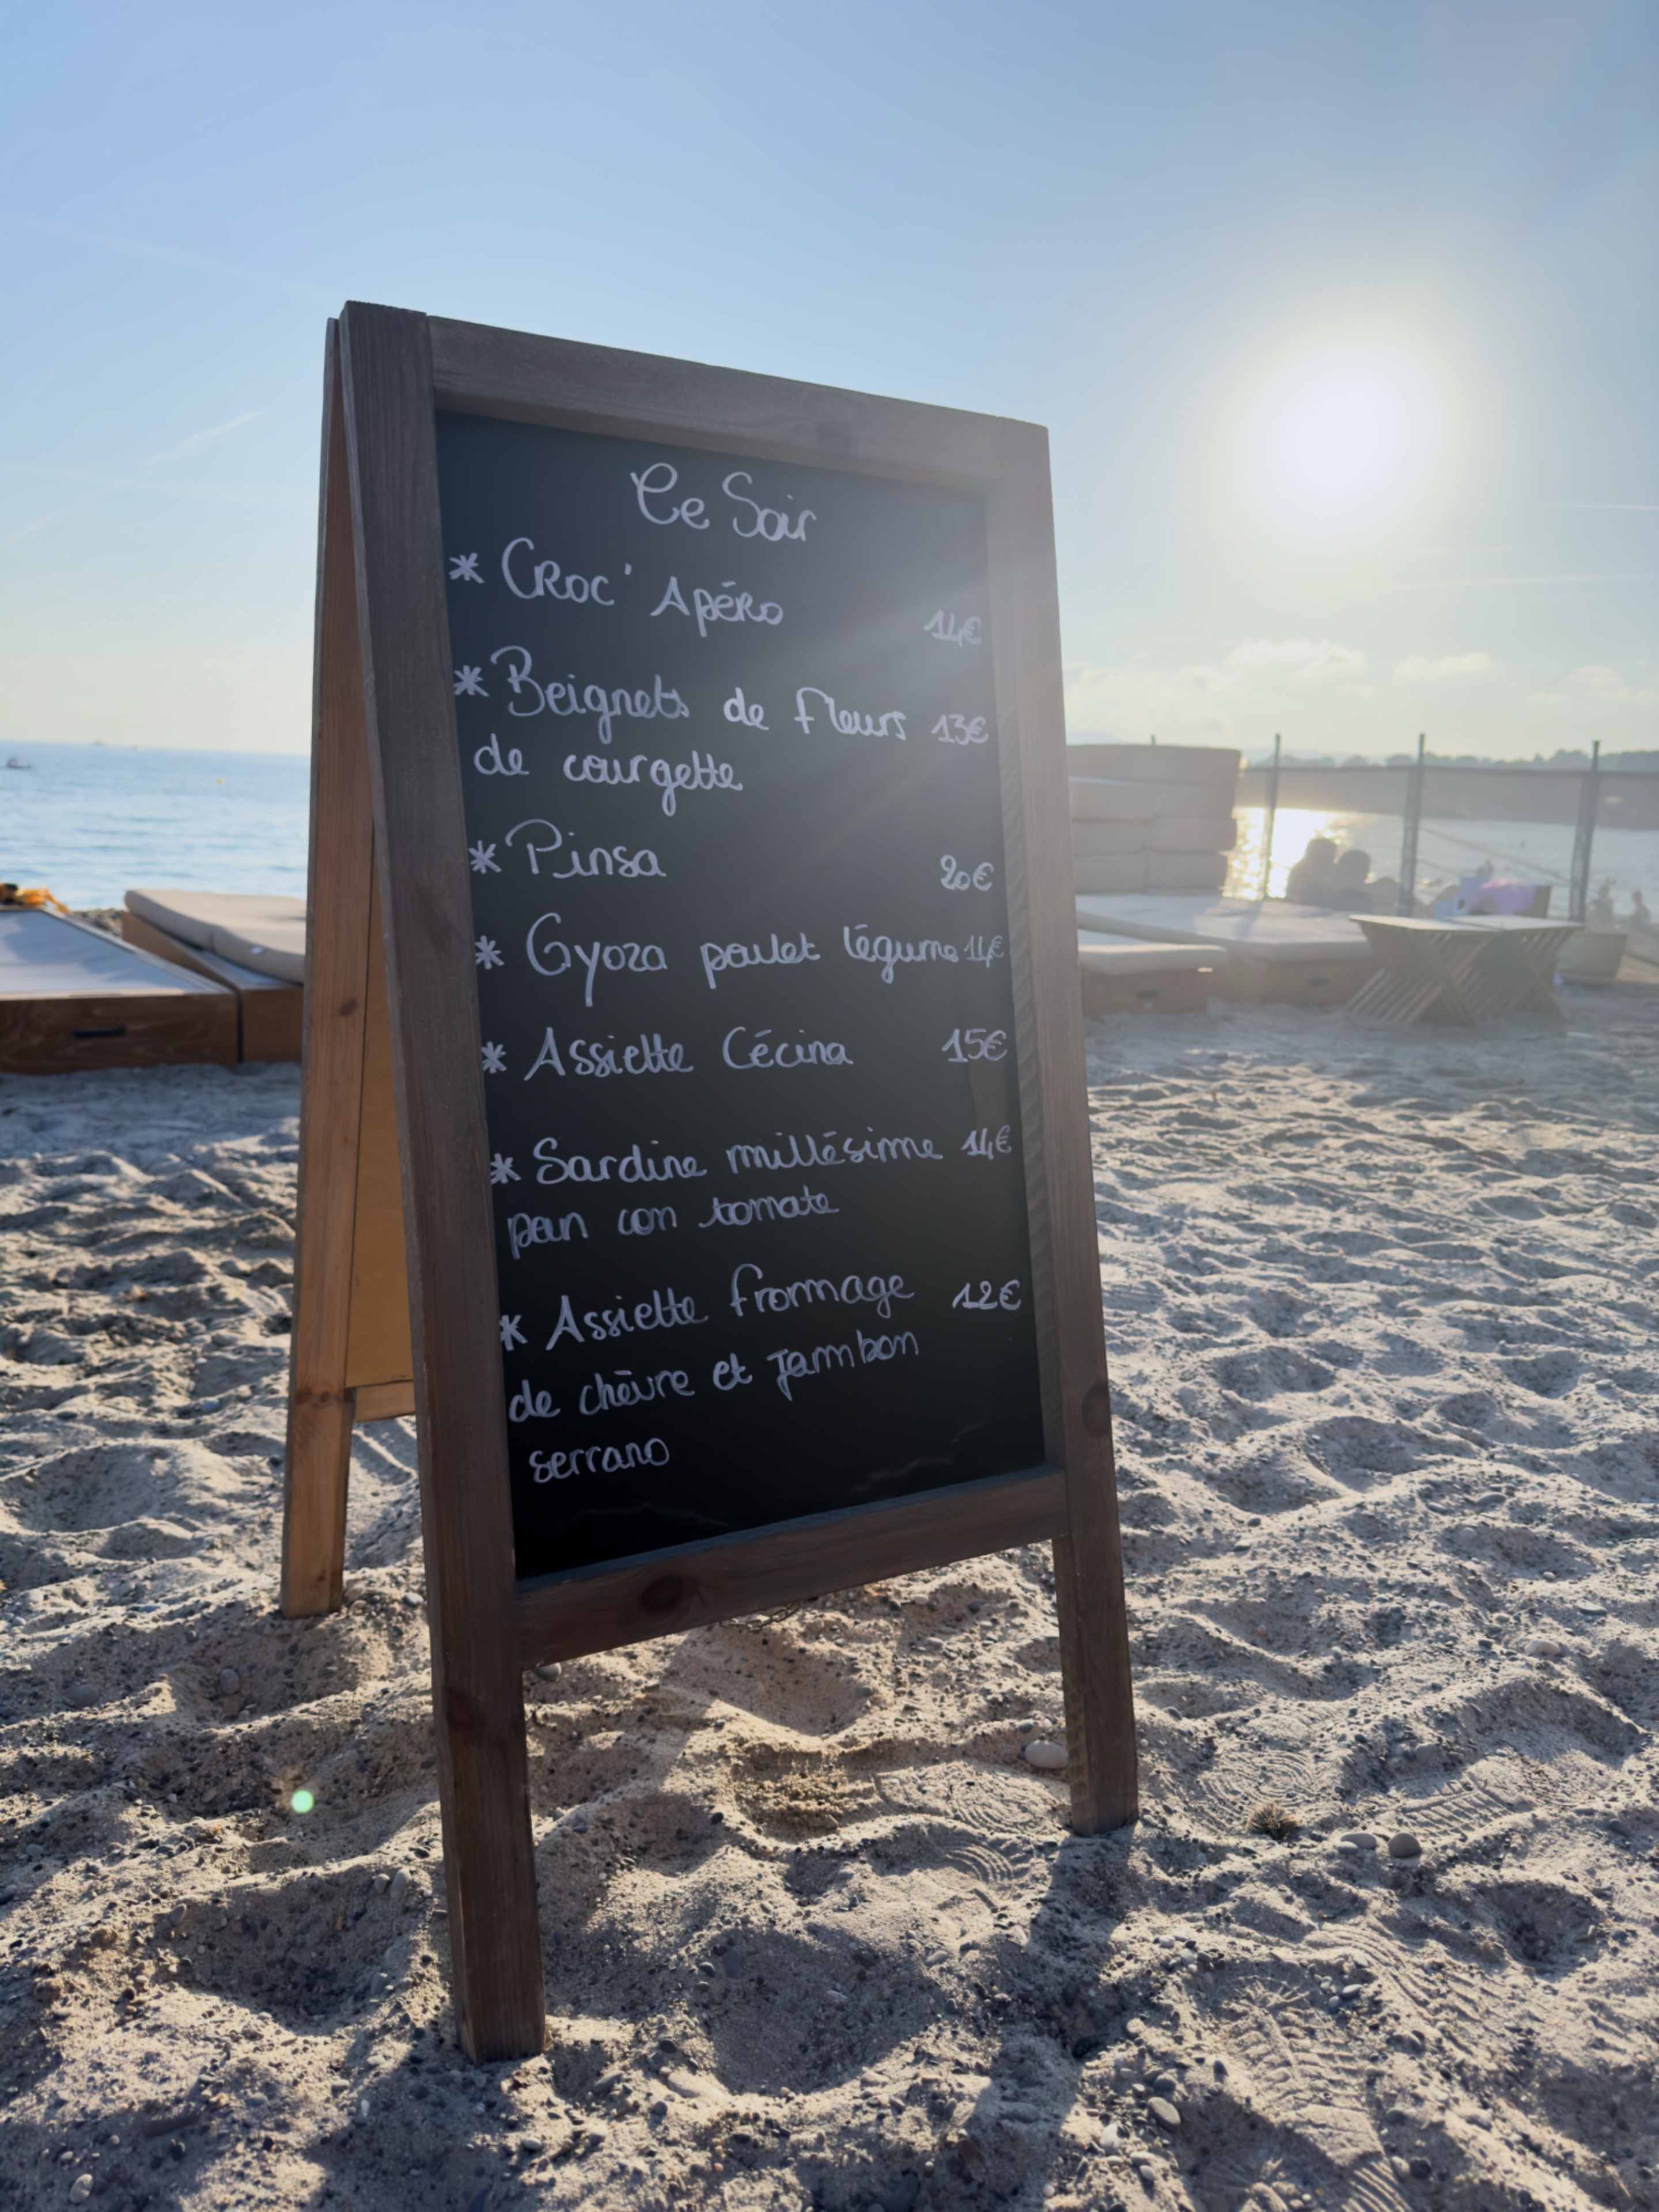 Ce Soir
* Croc' Apéro 14€
* Beignets de fleurs 13€
de courgette
* Pinsa 20€
* Gyoza poulet légume 14€
* Assiette Cécina 15€
* Sardine millésime 14€
pan con tomate
* Assiette fromage 12€
de chèvre et jambon
serrano